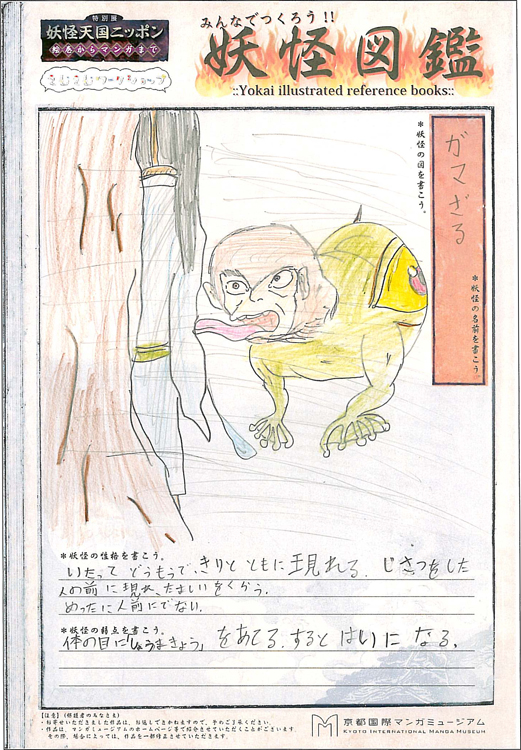 特別展
妖怪天国ニッポン
絵巻からマンガまで
えむえむワークショップ
みんなでつくろう!!
妖怪図鑑
::Yokai illustrated reference books::
＊妖怪の名前を書こう。
ガマざる
＊妖怪の図を書こう。
＊妖怪の性格を書こう。
いたって どうもうで、きりと ともに 現れる. じさつをした
人の前に 現れ、たましいをくらう.
めったに人前にでない.
＊妖怪の弱点を書こう。
体の目に「しょうまきょう」をあてる. すると はいに なる.
【注意】(保護者のみなさま)
・お寄せいただきました作品は、お返しできかねますので、予めご了承ください。
・作品は、マンガミュージアムのホームページ等で紹介させていただくことがございます。
その際、場合によっては、作品を一部修正させていただきます。
京都国際マンガミュージアム
KYOTO INTERNATIONAL MANGA MUSEUM